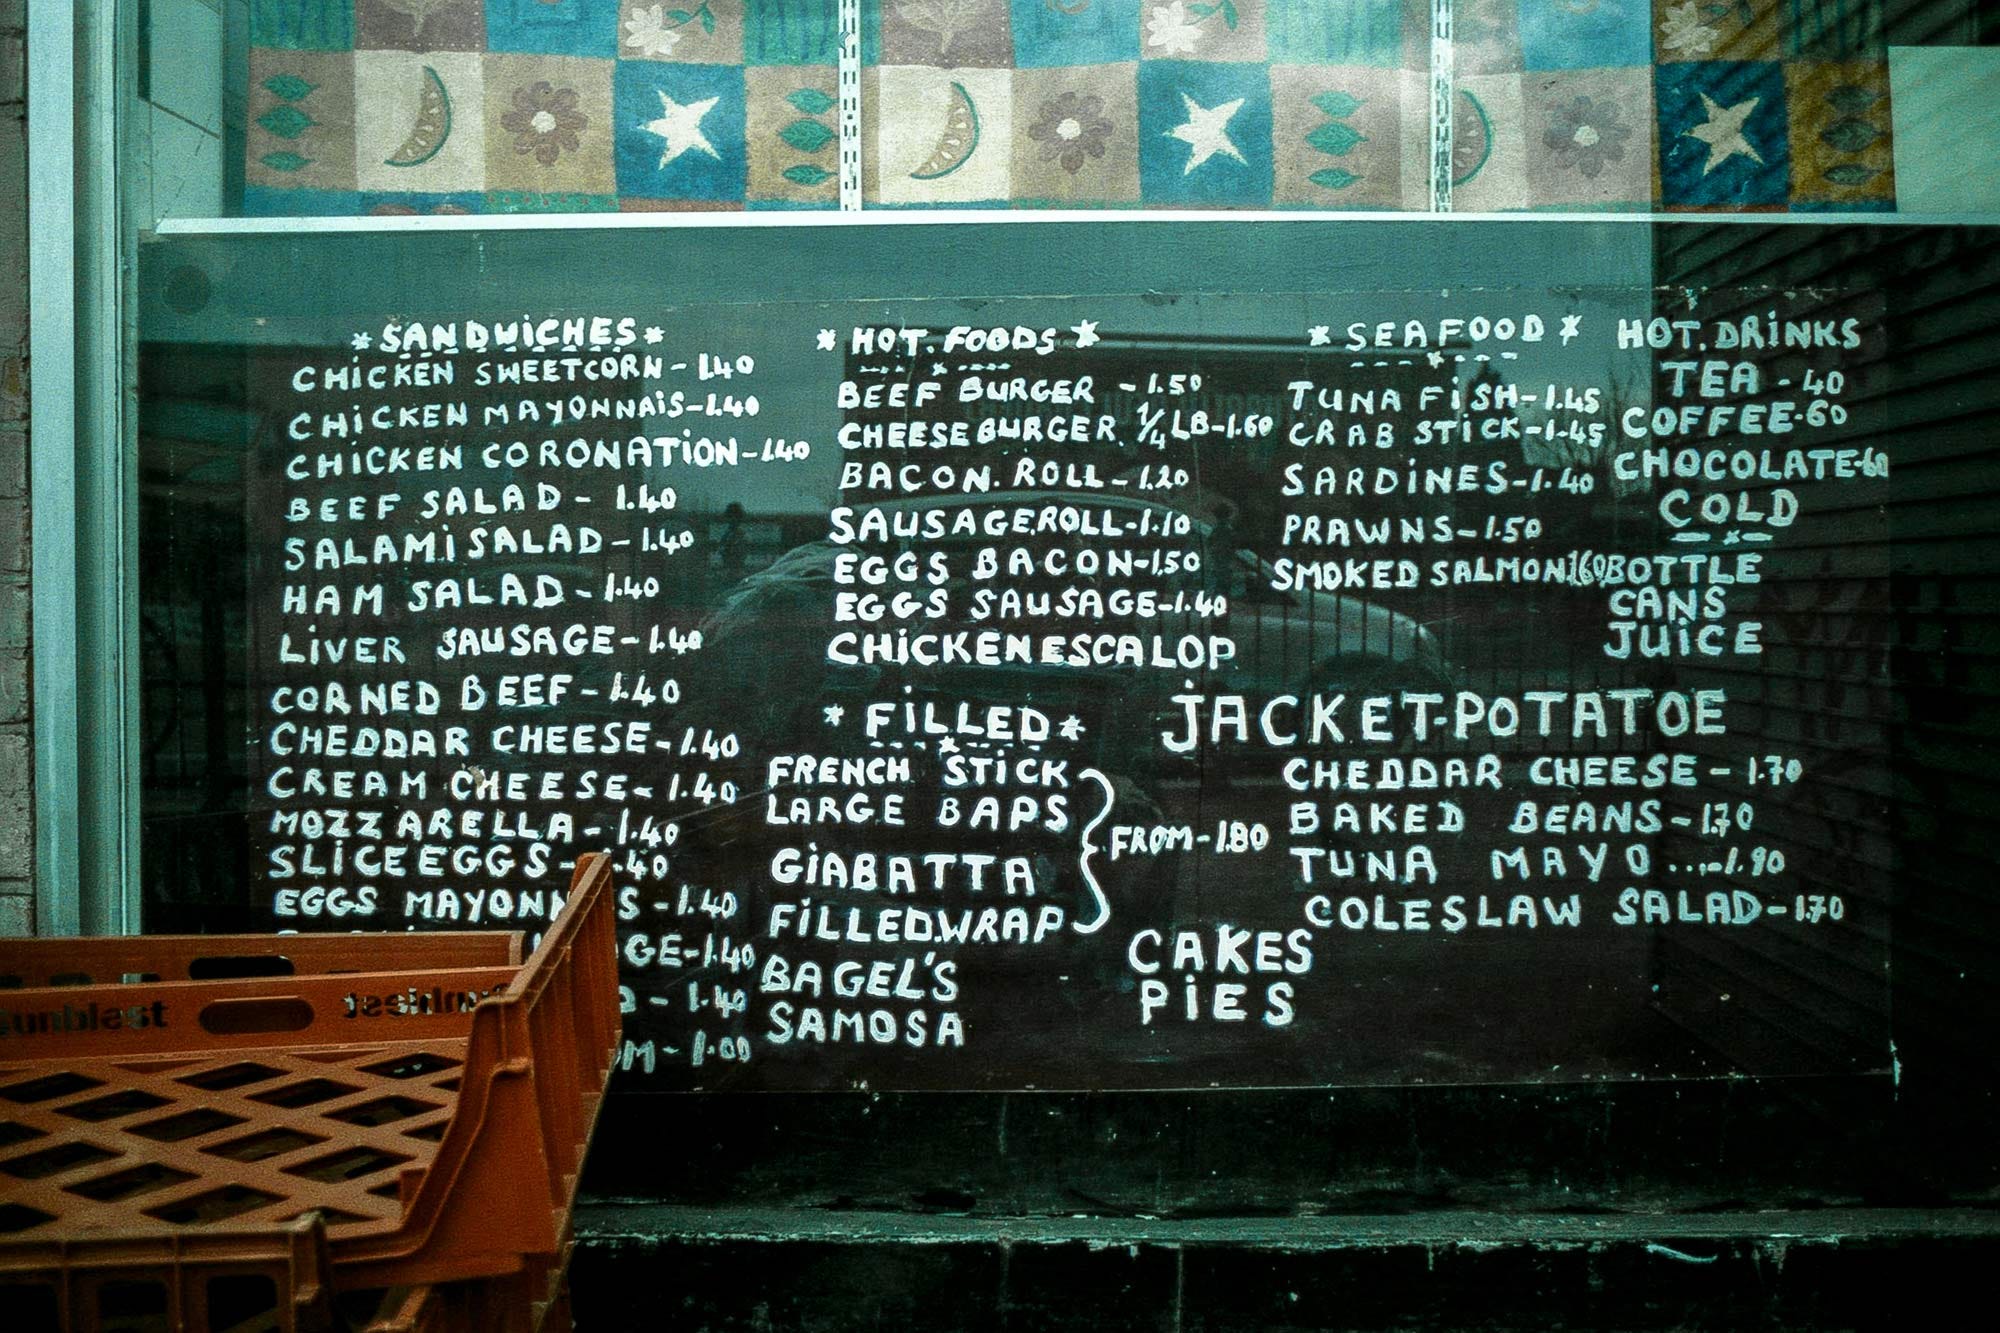 *SANDWiCHES*
CHiCKEN SWEETCORN - 1.40
CHiCKEN MAYONNAiS-1.40
CHiCKEN CORONATiON-1.40
BEEF SALAD - 1.40
SALAMi SALAD - 1.40
HAM SALAD - 1.40
LiVER SAUSAGE - 1.40
CORNED BEEF - 1.40
CHEDDAR CHEESE - 1.40
CREAM CHEESE - 1.40
MOZZARELLA - 1.40
SLiCE EGGS - 1.40
EGGS MAYONN S - 1.40
GE-1.40
- 1.40
M - 1.00
* HOT. FOODS *
BEEF BURGER - 1.50
CHEESE BURGER. 1/4 LB-1.60
BACON. ROLL - 1.20
SAUSAGE.ROLL-1.10
EGGS BACON-1.50
EGGS SAUSAGE-1.40
CHiCKEN ESCALOP
* FiLLED *
FRENCH STiCK
LARGE BAPS
GiABATTA
FiLLED.WRAP
FROM-1.80
BAGEL'S
SAMOSA
* SEAFOOD *
TUNA FiSH-1.45
CRAB STiCK-1.45
SARDiNES-1.40
PRAWNS-1.50
SMOKED SALMON 1.60
HOT. DRiNKS
TEA - 40
COFFEE-60
CHOCOLATE-60
COLD
BOTTLE
CANS
JUiCE
JACKET-POTATOE
CHEDDAR CHEESE - 1.70
BAKED BEANS - 1.70
TUNA MAYO ...-1.90
COLESLAW SALAD-1.70
CAKES
PiES
sunblest